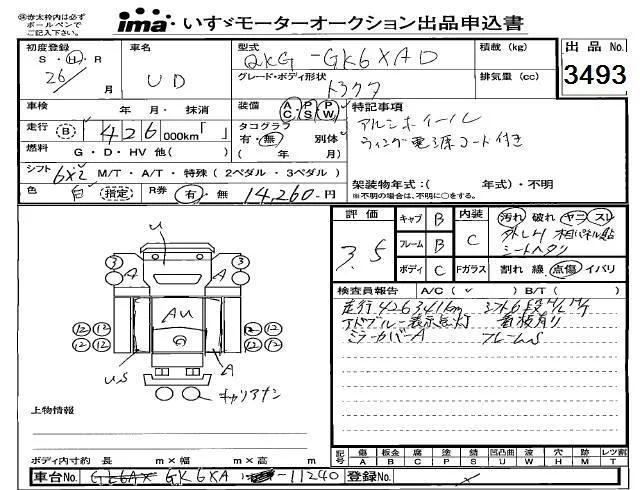 ※赤太枠内は必ず
ボールペンで
ご記入下さい。
ima いすゞモーターオークション出品申込書
初度登録 S・H・R 26/ 月
車名 UD
型式 QKG-GK6XAD
グレード・ボディ形状 トラクタ
積載 (kg)
排気量 (cc)
出品 No. 3493
車検 年 月・抹消
走行 (B) 426 000km「 」
燃料 G・D・HV 他( )
シフト 6x2 M/T・A/T・特殊 ( 2ペダル・3ペダル )
色 白 (指定) R券 有・無 14,260-円
装備 AC PS PW
タコグラフ 別体
有・無 ( 年 月)
特記事項
アルミホイール
ウィング電源コード付き
架装物年式:( 年式)・不明
※不明の場合は、不明に○をする。
評価 3.5
キャブ B
フレーム B
ボディ C
内装 C
Fガラス
汚れ 破れ ヤニ スレ
シートヘタリ
割れ 線 点傷 イバリ
検査員報告 A/C ( ✓ ) B/T ( )
走行426341km シフト6段
アドブルー表示点灯 看板有り
ミラーカバーA フレームS
u
3 3
A A
AU
12 12 12 12
12 12 12 12
us A
キャリアナシ
上物情報
ボディ内寸約 長 m×幅 m×高 m
記号
傷 板金 腐 塗 錆 凹凸曲 波 穴 跡 レツ割
A B C P S U W H M T
車台No. GK6XA -11240
登録No.